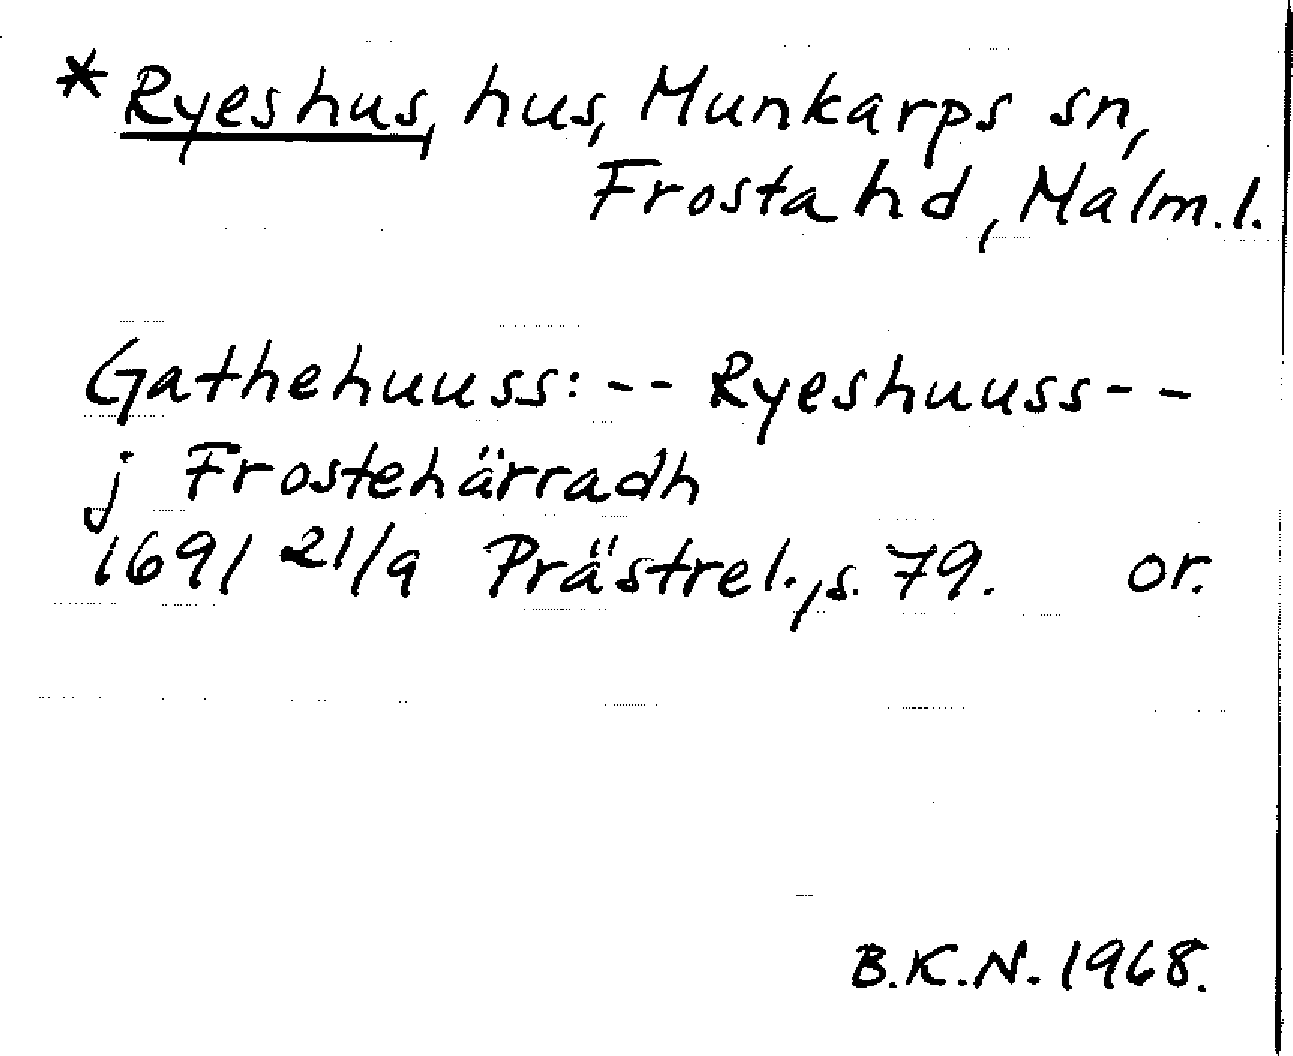 * Ryeshus, hus, Munkarps sn,
Frosta hd, Malm. l.
Gathehuuss: -- Ryeshuuss--
j Frostehärradh
1691 21/9 Prästrel., s. 79. or.
B.K.N. 1968.